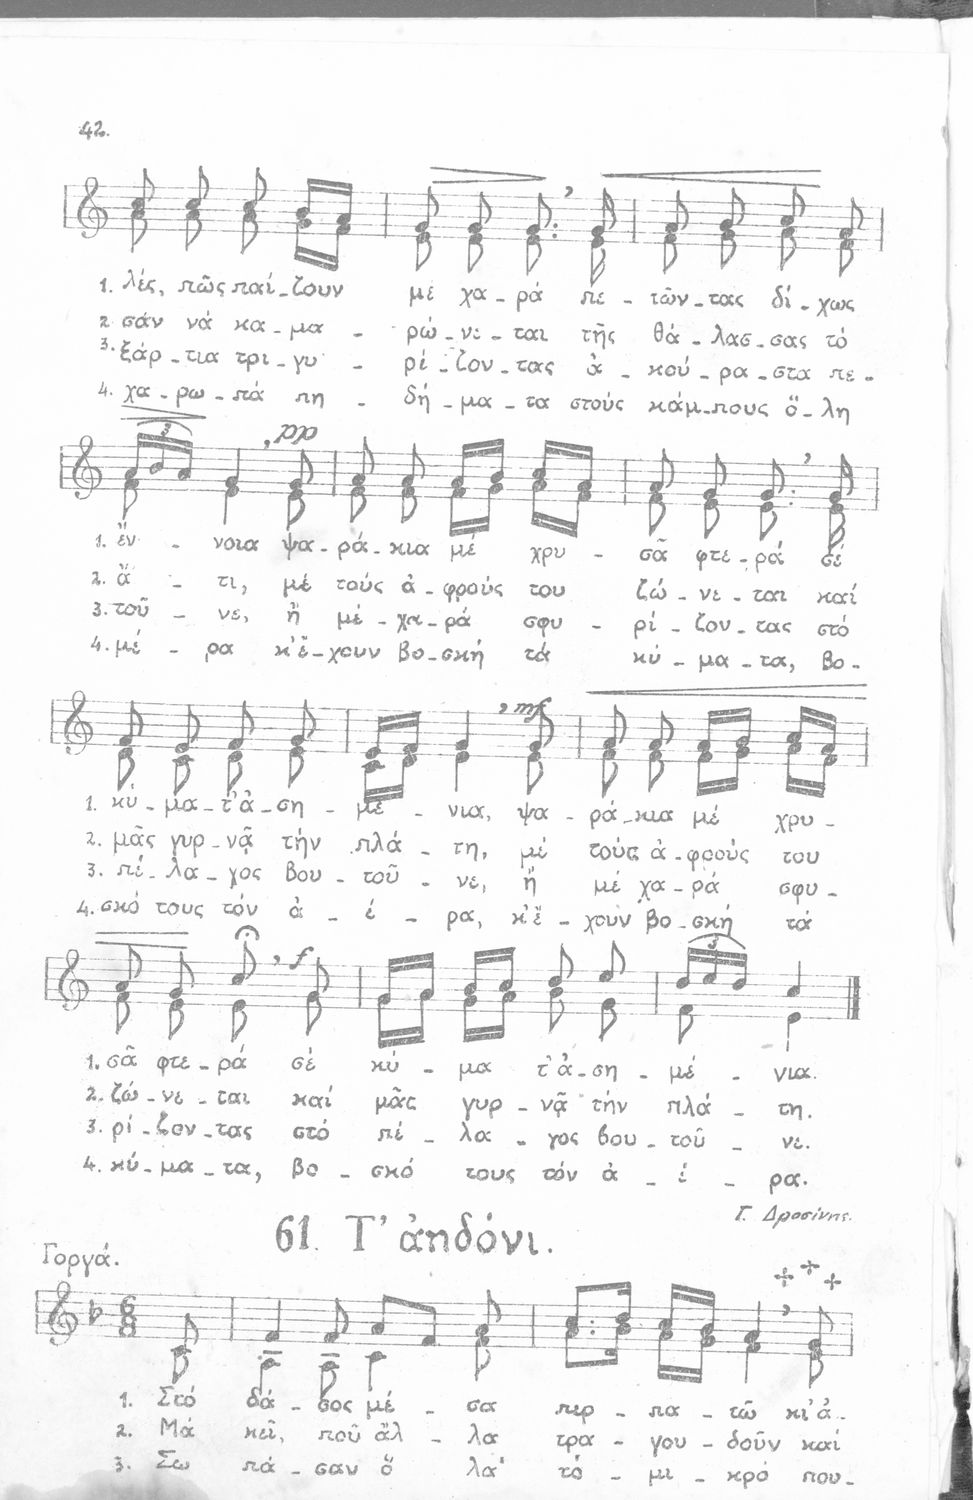 42.
1. λές, πῶς παί_ζουν μέ χα_ρά πε_τῶν_τας δί_χως
2 σάν νά κα_μα_ρώ_νε_ται τῆς θά_λασ_σας τό
3. ξάρ_τια τρι_γυ_ρί_ζον_τας ἀ_κού_ρα_στα πε_
4. χα_ρω_πά πη_δή_μα_τα στούς κάμ_πους ὅ_λη
3
, pp
1. ἔν_νοια ψα_ρά_κια μέ χρυ_σᾶ φτε_ρά σέ
2. ἅ_τι, μέ τούς ἀ_φρούς του ζώ_νε_ται καί
3. τοῦ_νε, ἤ μέ_χα_ρά σφυ_ρί_ζον_τας στό
4. μέ_ρα κ'ἔ_χουν βο_σκή τά κύ_μα_τα, βο_
, mf
1. κύ_μα_τ'ἀ_ση_μέ_νια, ψα_ρά_κια μέ χρυ_
2. μᾶς γυρ_νᾷ τήν πλά_τη, μέ τούς ἀ_φρούς του
3. πέ_λα_γος βου_τοῦ_νε, ἤ μέ χα_ρά σφυ_
4. σκό τους τόν ἀ_έ_ρα, κ'ἔ_χουν βο_σκή τά
, f
3
1. σᾶ φτε_ρά σέ κύ_μα τ'ἀ_ση_μέ_νια.
2. ζώ_νε_ται καί μᾶς γυρ_νᾷ τήν πλά_τη.
3. ρί_ζον_τας στό πέ_λα_γος βου_τοῦ_νε.
4. κύ_μα_τα, βο_σκό τους τόν ἀ_έ_ρα.
Γ. Δροσίνης.
61. Τ' ἀηδόνι.
Γοργά.
6 8
1. Στό δά_σος μέ_σα περ_πα_τῶ κι'ἀ_
2. Μά κεῖ, ποῦ ἄλ_λα τρα_γου_δοῦν καί
3. Σω πά_σαν ὅ_λα τό_μι_κρό που_